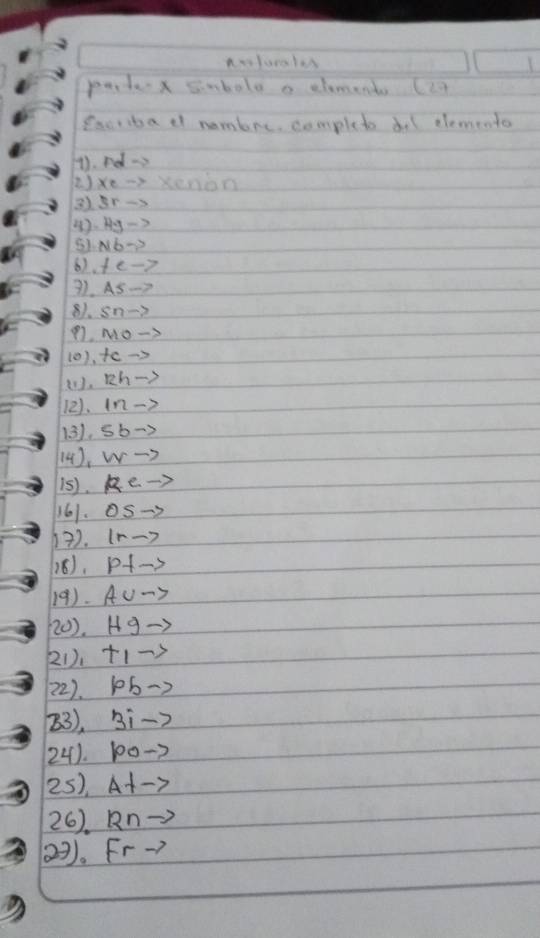 Naturales
parte x simbolo o elemento (27
Escriba el nombre completo del elemento
1). nd ->
2) xe -> xenón
3) Sr ->
4). Hg ->
5). Nb ->
6). te ->
7). As ->
8). sn ->
9). Mo ->
10). tc ->
11). Rh ->
12). In ->
13). sb ->
14), W ->
15). Re ->
16). Os ->
17). Ir ->
18). Pt ->
19). Au ->
20). Hg ->
21), tl ->
22). Pb ->
23), Bi ->
24). po ->
25), At ->
26). Rn ->
27). Fr ->